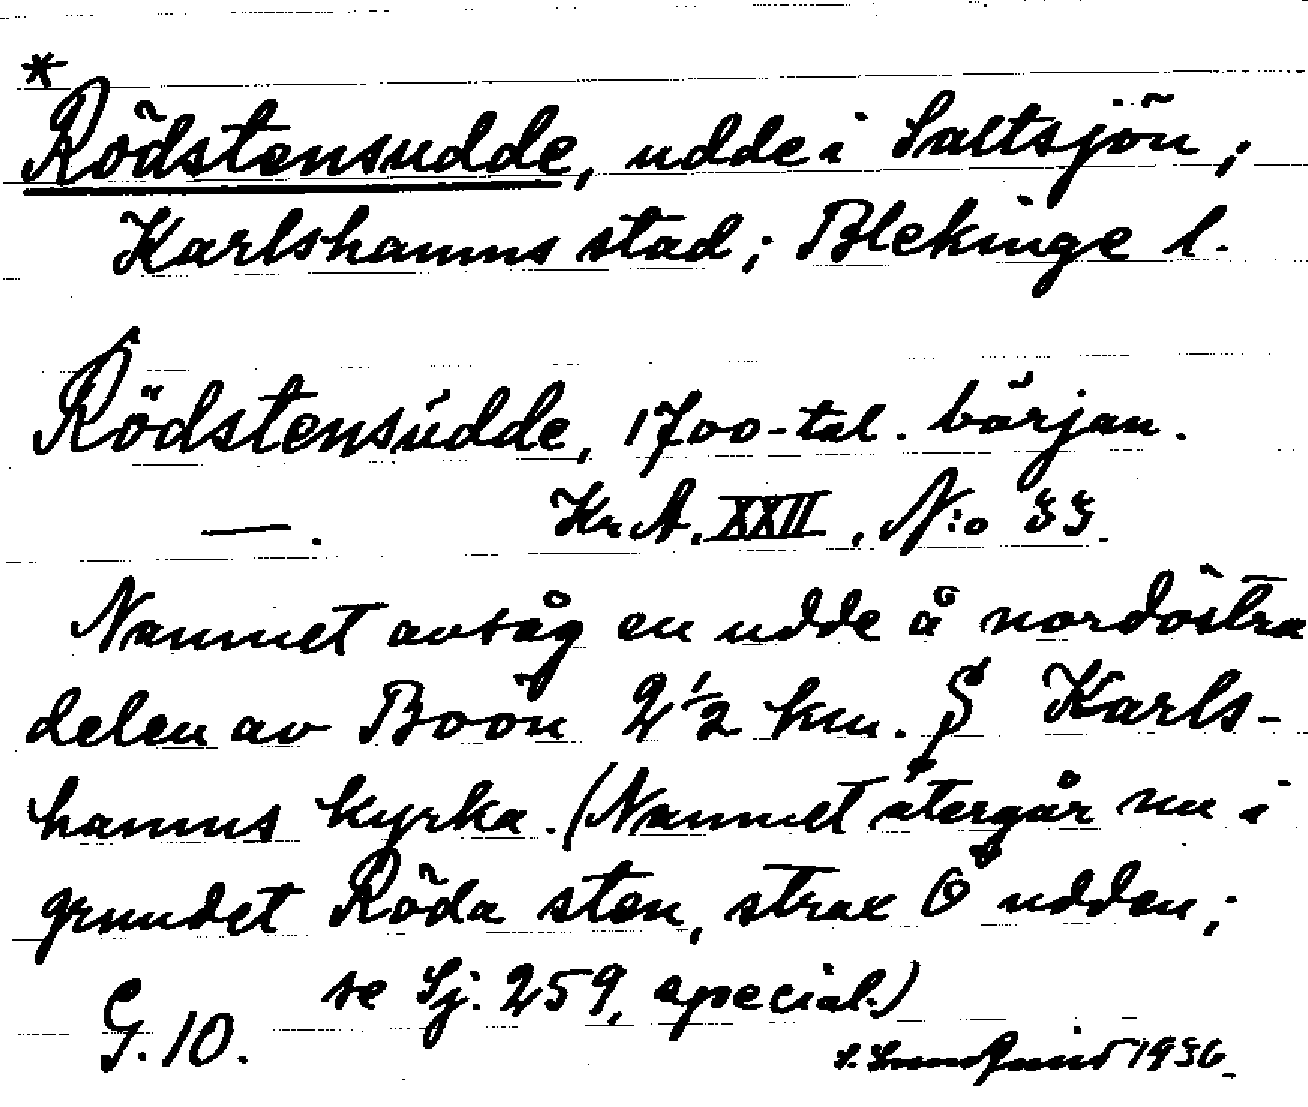 *
Rödstensudde, udde i Saltsjön;
Karlshamns stad; Blekinge l.
Rödstensudde, 1700-tal. början.
—. Kr. A. XXII, N:o 33.
Namnet avsåg en udde å nordöstra
delen av Boön 2 1/2 km. S Karls-
hamns kyrka. (Namnet återgår nu i
grundet Röda sten, strax Ö udden;
se Sj. 259, special.)
G. 10.
1936.